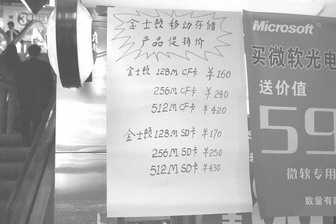 金士顿移动存储
产品促销价
金士顿128M CF卡 ¥160
256M CF卡 ¥240
512M CF卡 ¥420
金士顿128M SD卡 ¥170
256M SD卡 ¥250
512M SD卡 ¥430
Microsoft
买微软光电
送价值
59
微软专用
数量有